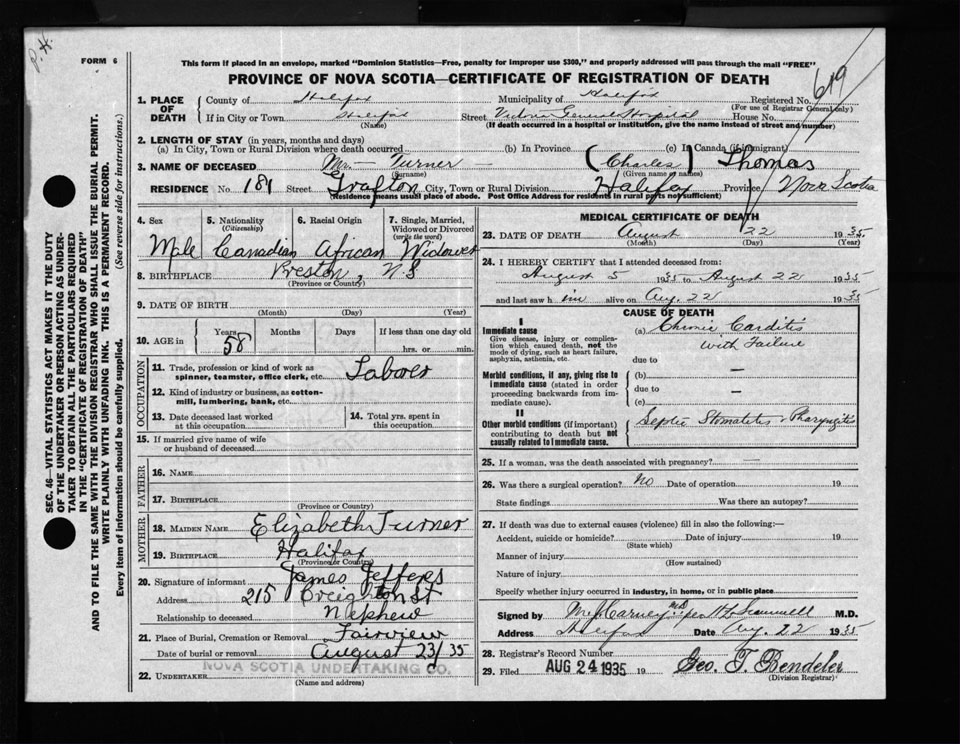 P. H.
FORM 6
This form if placed in an envelope, marked "Dominion Statistics—Free, penalty for improper use $300," and properly addressed will pass through the mail "FREE"
PROVINCE OF NOVA SCOTIA—CERTIFICATE OF REGISTRATION OF DEATH
1. PLACE OF DEATH County of Halifax Municipality of Halifax Registered No. 619
(For use of Registrar General only)
If in City or Town Halifax Street Victoria General Hospital House No.
(Name) (If death occurred in a hospital or institution, give the name instead of street and number)
2. LENGTH OF STAY (in years, months and days)
(a) In City, Town or Rural Division where death occurred (b) In Province (c) In Canada (if immigrant)
3. NAME OF DECEASED Mr — Turner — (Charles) Thomas
(Surname) (Given name or names)
RESIDENCE No. 181 Street Grafton City, Town or Rural Division Halifax Province Nova Scotia
(Residence means usual place of abode. Post Office Address for residents in rural parts not sufficient)
4. Sex 5. Nationality (Citizenship) 6. Racial Origin 7. Single, Married, Widowed or Divorced (write the word)
Male Canadian African Widower
8. BIRTHPLACE Preston, N.S
(Province or Country)
9. DATE OF BIRTH
(Month) (Day) (Year)
10. AGE in Years Months Days If less than one day old
58 hrs. or min.
OCCUPATION
11. Trade, profession or kind of work as spinner, teamster, office clerk, etc. Laborer
12. Kind of industry or business, as cotton-mill, lumbering, bank, etc.
13. Date deceased last worked at this occupation 14. Total yrs. spent in this occupation
15. If married give name of wife or husband of deceased
FATHER
16. NAME
17. BIRTHPLACE
(Province or Country)
MOTHER
18. MAIDEN NAME Elizabeth Turner
19. BIRTHPLACE Halifax
(Province or Country)
20. Signature of informant James Jefferes
Address 215 Creighton St
Relationship to deceased Nephew
21. Place of Burial, Cremation or Removal Fairview
Date of burial or removal August 23/35
NOVA SCOTIA UNDERTAKING CO.
22. UNDERTAKER
(Name and address)
MEDICAL CERTIFICATE OF DEATH
23. DATE OF DEATH August 22 1935.
(Month) (Day) (Year)
24. I HEREBY CERTIFY that I attended deceased from:
August 5 1935 to August 22 1935
and last saw him alive on Aug. 22 1935
CAUSE OF DEATH
I
Immediate cause (a) Chronic Carditis
Give disease, injury or complication which caused death, not the mode of dying, such as heart failure, asphyxia, asthenia, etc.
with Failure
due to
Morbid conditions, if any, giving rise to immediate cause (stated in order proceeding backwards from immediate cause).
(b) —
due to —
(c)
II
Other morbid conditions (if important) contributing to death but not causally related to immediate cause.
Septic Stomatitis & Pharyngitis
25. If a woman, was the death associated with pregnancy? —
26. Was there a surgical operation? No Date of operation 19
State findings Was there an autopsy?
27. If death was due to external causes (violence) fill in also the following:—
Accident, suicide or homicide? Date of injury 19
(State which)
Manner of injury
(How sustained)
Nature of injury
Specify whether injury occurred in industry, in home, or in public place
Signed by M.D.
Address Halifax Date Aug. 22 1935
28. Registrar's Record Number
29. Filed AUG 24 1935 19
(Division Registrar)
SEC. 46—VITAL STATISTICS ACT MAKES IT THE DUTY
OF THE UNDERTAKER OR PERSON ACTING AS UNDER-
TAKER TO OBTAIN ALL THE PARTICULARS REQUIRED
IN THE "CERTIFICATE OF REGISTRATION OF DEATH"
AND TO FILE THE SAME WITH THE DIVISION REGISTRAR WHO SHALL ISSUE THE BURIAL PERMIT.
WRITE PLAINLY WITH UNFADING INK. THIS IS A PERMANENT RECORD.
Every item of information should be carefully supplied. (See reverse side for instructions.)